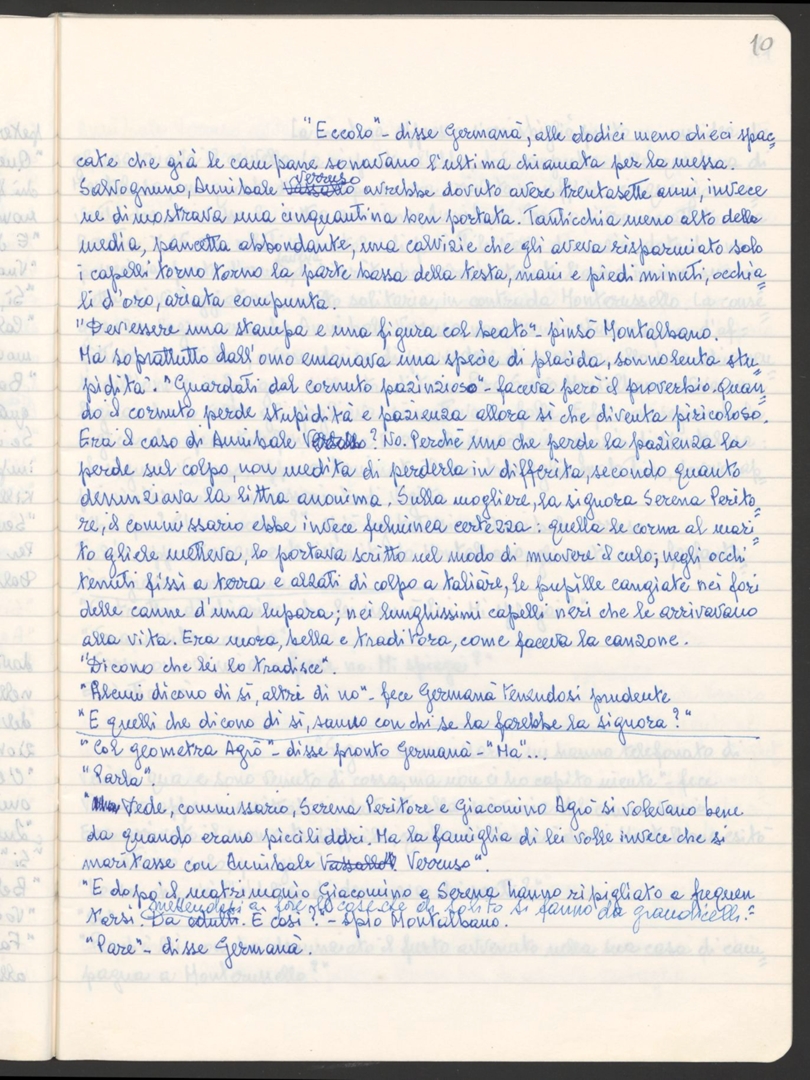 10
"Eccolo" - disse Germanà, alle dodici meno dieci spac=
cate che già le campane sonavano l'ultima chiamata per la messa.
Salvognuno, Annibale Vassallo Verruso avrebbe dovuto avere trentasette anni, invece
ne dimostrava una cinquantina ben portata. Tanticchia meno alto della
media, pancetta abbondante, una calvizie che gli aveva risparmiato solo
i capelli torno torno la parte bassa della testa, mani e piedi minuti, occhia=
li d'oro, ariata compunta.
"Dev'essere una stampa e una figura col beato" - pinsò Montalbano.
Ma soprattutto dall'omo emanava una specie di placida, sonnolenta stu=
pidità. "Guardati dal cornuto pazinzioso" - faceva però il proverbio. Quan=
do il cornuto perde stupidità e pazienza allora sì che diventa piricoloso.
Era il caso di Annibale Verruso? No. Perché uno che perde la pazienza la
perde sul colpo, non medita di perderla in differita, secondo quanto
dinunziava la littra anonima. Sulla mogliere, la signora Serena Perito=
re, il commissario ebbe invece fulminea certezza: quella le corna al mari=
to gliele metteva, lo portava scritto nel modo di muovere il culo; negli occhi
tenuti fissi a terra e alzati di colpo a taliàre, le pupille cangiate nei fori
delle canne d'una lupara; nei lunghissimi capelli neri che le arrivavano
alla vita. Era mora, bella e traditora, come faceva la canzone.
"Dicono che lei lo tradisce".
"Alcuni dicono di sì, altri di no" - fece Germanà tenendosi prudente
"E quelli che dicono di sì, sanno con chi se la farebbe la signora?"
"Col geometra Agrò" - disse pronto Germanà - "Ma"...
"Parla".
"Vede, commissario, Serena Peritore e Giacomino Agrò si volevano bene
da quando erano picciliddri. Ma la famiglia di lei volle invece che si
maritasse con Annibale Vassallo Verruso".
"E dopo il matrimonio Giacomino e Serena hanno ripigliato a frequen
mettendosi a fare le cose che di solito si fanno da grandicelli."
tarsi. Da adulti. È così?" - spiò Montalbano.
"Pare" - disse Germanà.